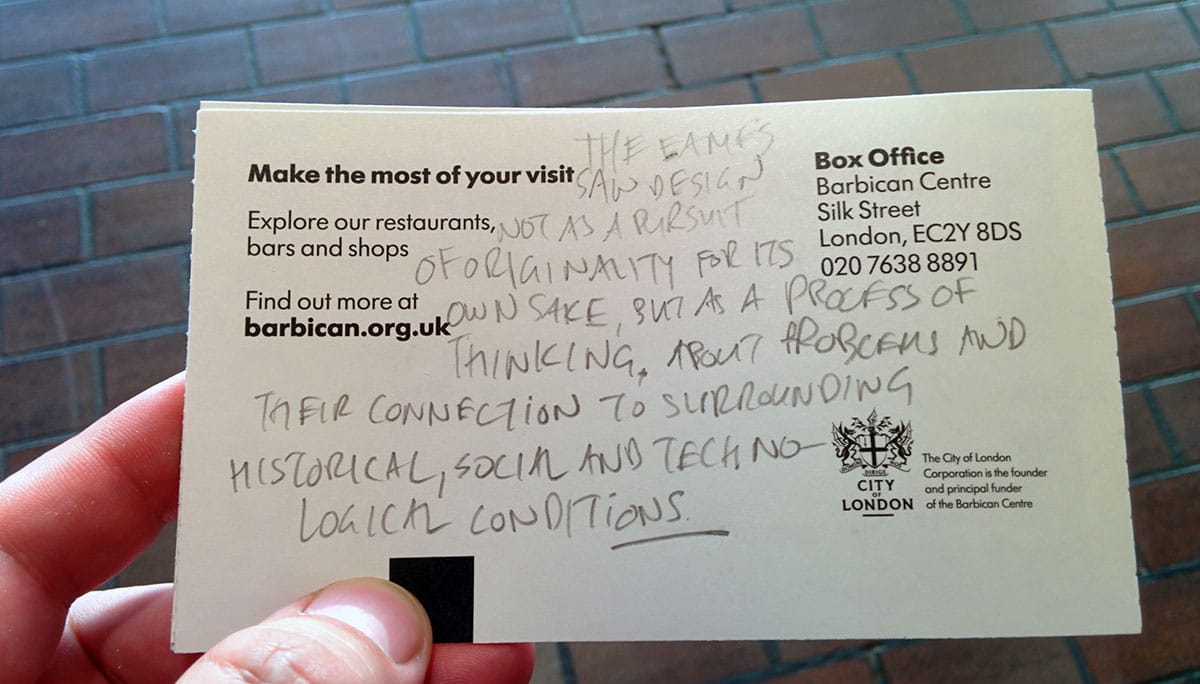 Make the most of your visit
Explore our restaurants,
bars and shops
Find out more at
barbican.org.uk
THE EAMES
SAW DESIGN
NOT AS A PURSUIT
OF ORIGINALITY FOR ITS
OWN SAKE, BUT AS A PROCESS OF
THINKING, ABOUT PROBLEMS AND
THEIR CONNECTION TO SURROUNDING
HISTORICAL, SOCIAL AND TECHNO-
LOGICAL CONDITIONS.
Box Office
Barbican Centre
Silk Street
London, EC2Y 8DS
020 7638 8891
DIRIGE
CITY
OF
LONDON
The City of London
Corporation is the founder
and principal funder
of the Barbican Centre